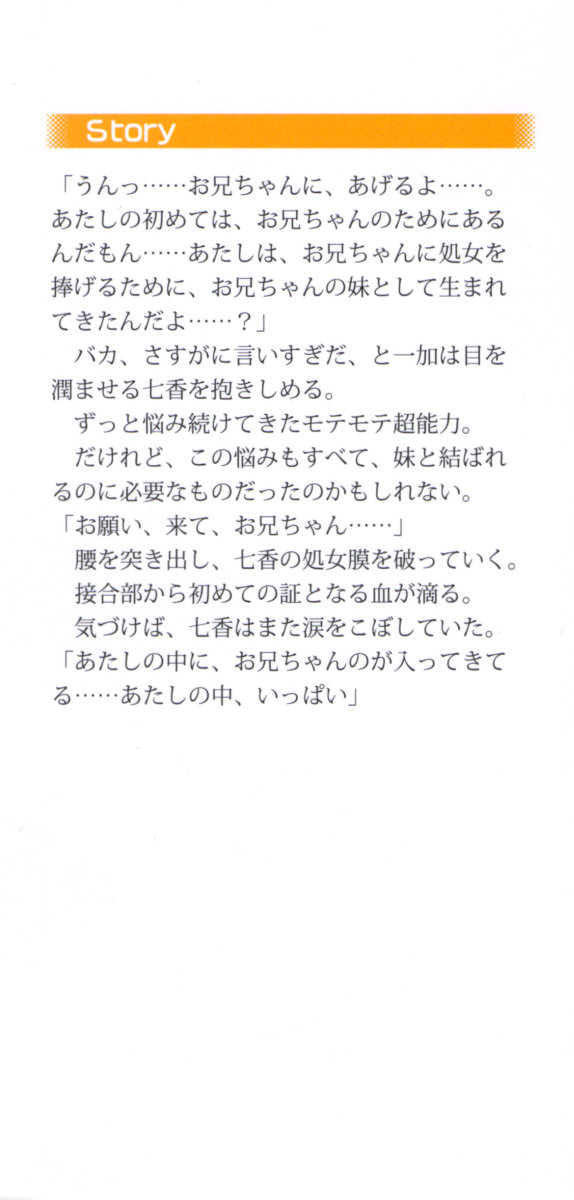 Story
「うんっ……お兄ちゃんに、あげるよ……。
あたしの初めては、お兄ちゃんのためにある
んだもん……あたしは、お兄ちゃんに処女を
捧げるために、お兄ちゃんの妹として生まれ
てきたんだよ……？」
　バカ、さすがに言いすぎだ、と一加は目を
潤ませる七香を抱きしめる。
　ずっと悩み続けてきたモテモテ超能力。
　だけれど、この悩みもすべて、妹と結ばれ
るのに必要なものだったのかもしれない。
「お願い、来て、お兄ちゃん……」
　腰を突き出し、七香の処女膜を破っていく。
　接合部から初めての証となる血が滴る。
　気づけば、七香はまた涙をこぼしていた。
「あたしの中に、お兄ちゃんのが入ってきて
る……あたしの中、いっぱい」